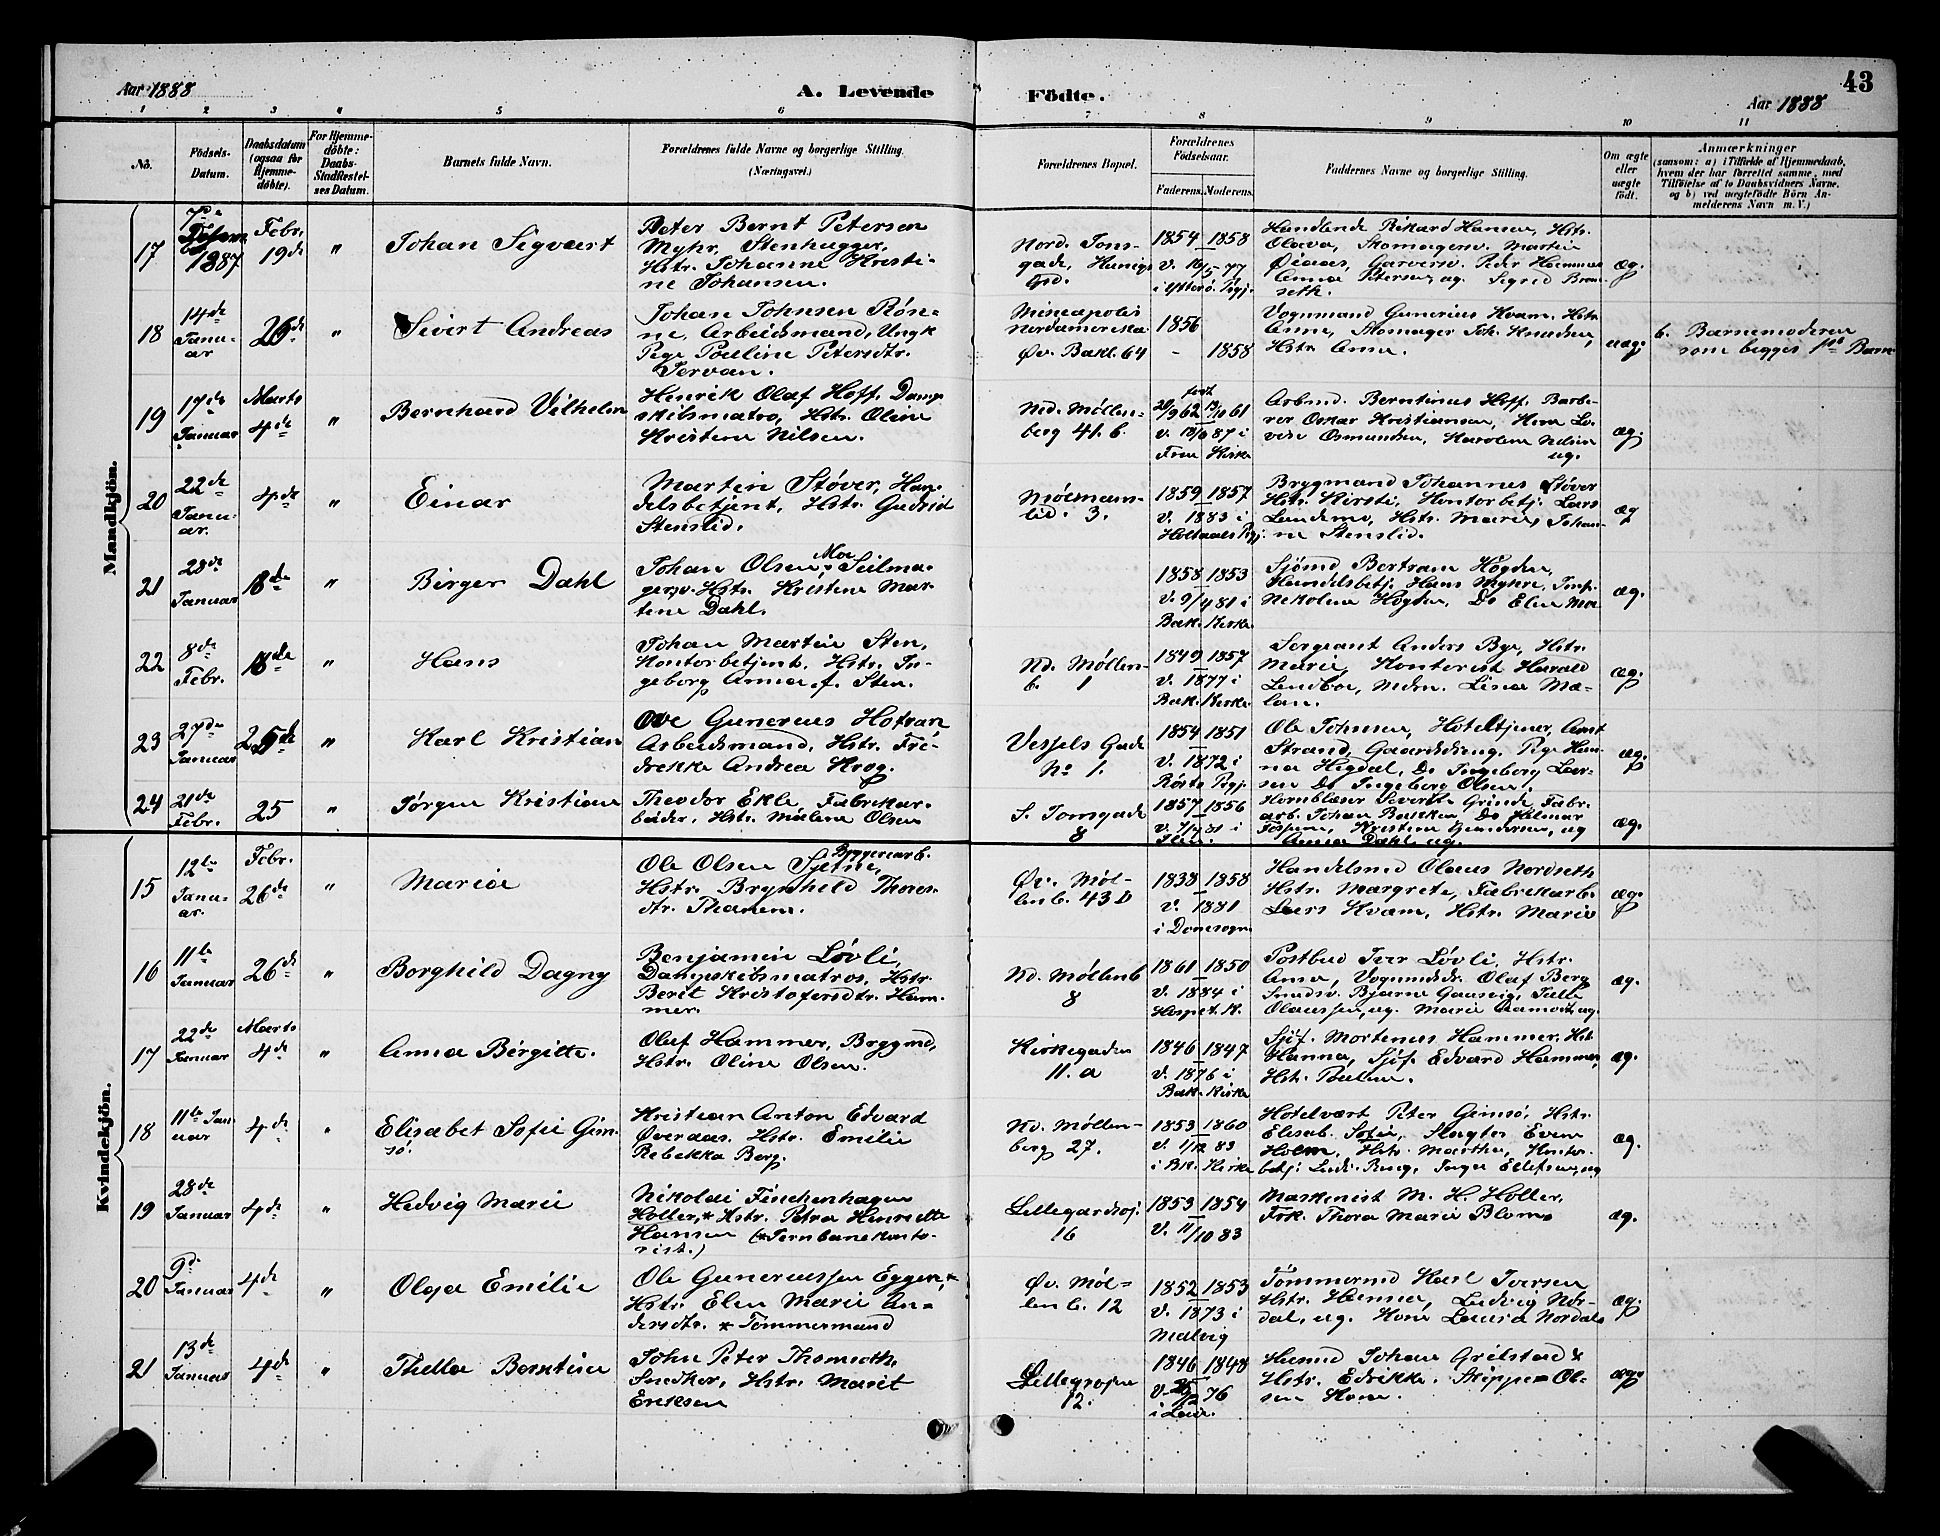 Aar 1888
A. Levende
Födte.
Aar 1888
43
1 2 3 4 5 6 7 8 9 10 11
No.
Födsels-
Datum.
Daabsdatum
(ogsaa for
Hjemme-
döbte).
For Hjemme-
döbte:
Daabs-
Stadfæstel-
ses Datum.
Barnets fulde Navn.
Forældrenes fulde Navne og borgerlige Stilling.
(Næringsvei.)
Forældrenes Bopæl.
Forældrenes
Födselsaar.
Faderens. Moderens.
Faddernes Navne og borgerlige Stilling.
Om ægte
eller
uægte
født.
Anmærkninger
(sansom: a) i Tilfælde af Hjemmedaab,
hvem der har forrettet samme, med
Tilföielse af to Daabsvidners Navne,
og b) ved uægtefödte Börn An-
melderens Navn m. V.)
Mandkjön.
17
1887
Febr.
19de
"
Johan Sigvart
Peter Bernt Petersen
Myhr, Stenhugger,
Hstr. Johanne Kristi-
ne Johansen.
Nord. Tons-
gade,
1854 1858
v. 16/5 77
Handlende Rikard Hansen, Hstr.
Olava, Skomagersv. Martin
Garversv. Peder
Anna Petersen, ug. Sigrid
æg.
18
14de
Janu-
ar
26de
"
Sivert Andreas
Johan Johnsen Røn-
ne, Arbeidsmand, Ungk
Pige Pauline Petersdtr.
Servan.
Mineapolis
Nordamerika
Øv. Bakl. 64
1856
- 1858
Vognmand Gunerius Kvam, Hstr.
Anne, Skomager Joh. Knudsen,
Hstr. Anne.
uæg.
b. Barnemoderen
som begges 1ste Barn
19
17de
Januar
Marts
4de
"
Bernhard Vilhelm
Henrik Olaf Hoff, Damp-
skibsmatros, Hstr. Oline
Kristine Nilsen.
Nd. Møllen-
berg 41. b.
født
20/9 62 13/10 61
87 i
Frue Kirke
Arbmd. Berntinus Hoff, Barbe-
rer Oskar Kristiansen,
Osmundsen, Karoline Nilsen
ug.
æg.
20
22de
Janu-
ar.
4de
"
Einar
Martin Støver, Han-
delsbetjent, Hstr. Gudrid
Stenslid.
lid. 3.
1859 1857
v. 1883 i
Brygmand Johannes Støver
Hstr. Kirsti, Kontorbetj. Lars
Lundemo, Hstr. Marie, Johan-
ne Stenslid.
æg
21
28de
Januar
18de
"
Birger Dahl
Johan Olsen Moe, Seilma-
gersv. Hstr. Kristine Mar-
tine Dahl.
1858 1853
v. 9/4 81 i
Bak. Kirke.
Sjømd Bertram Høgden,
Handelsbetj. Hans Myhre,
Nikoline Høgden, Do Elen Moe
æg.
22
8de
Febr.
18de
"
Hans
Johan Martin Sten,
Kontorbetjent, Hstr. In-
geborg Anna f. Sten.
Nd. Møllen-
b. 1
1849 1857
v. 1877 i
Bak. Kirke.
Sergeant Anders Bye, Hstr.
Marie, Kontorist Harald
Lundboe, Mdm. Lina Mæ-
lan.
æg.
23
27de
Januar
25de
"
Karl Kristian
Ove Gunerius Hofran
Arbeidsmand, Hstr. Fre-
drekke Andrea Krog.
Vessels Gade
No 1.
1854 1851
v. 1872 i
Ole Johnsen, Hoteltjener, Arnt
Strand, Gaardsdreng, Pige Han-
na Hegdal, Do Ingeborg Lar-
sen Do Ingeborg Olsen.
æg.
24
21de
Febr.
25
"
Jørgen Kristian
Theodor Ekle, Fabrikar-
beider, Hstr. Malene Olsen
S. Tonsgade
8
1857 1856
81 i
Hornblæser Sivert Grinde, Fabr.
arb. Johan Bakken, Do Hilmar
Kristine Gundersen, ug
Anna Dahl, ug.
æg.
Kvindekjön.
15
12te
Janu-
ar.
Febr.
26de
"
Maria
Ole Olsen Sjetne, Bryggeriarb.
Hstr. Brynhild Thores-
dtr. Thanem.
Øv. Møl-
lenb. 43 D
1838 1858
v. 1881
i Domsogn
Handelsmd Olaus Nordseth
Hstr. Margrete, Fabrikarb.
Lars Kvam, Hstr. Marie
æg.
16
11te
Januar
26de
"
Borghild Dagny
Benjamin Løvli,
Dampskibsmatros, Hstr
Berit Kristofersdtr. Ham-
mer.
Nd. Møllenb
8
1861 1850
v. 1884 i
Hospit. K.
Postbud Iver Løvli, Hstr.
Anna, Vognmdsdr. Olaf Berg
Smedsv. Bjarne Gaasvig,
Olaussen, ug. Marie Aamodt, ug.
æg.
17
22de
Januar
Marts
4de
"
Anna Birgitte.
Olaf Hammer, Brygmd,
Hstr. Oline Olsen.
Kirkegaden
11. a
1846 1847
v. 1876 i
Bak. Kirke
Sjöf. Mortenus Hammer, Hstr
Hanna, Sjöf. Edvard Hammer,
Hstr. Pauline.
æg.
18
11te Jan-
uar
4de
"
Elisabet Sofie Gim-
sö.
Kristian Anton Edvard
Øveraas, Hstr. Emilie
Rebekka Berg.
Nd. Møllen-
berg 27.
1853 1860
v. 1/12 83
i Bk. Kirke
Hotelvært Peter Gimsö, Hstr.
Elisab. Sofie, Slagter Even
Holm, Hstr. Marthe, Kontor-
betj. Ludv. Ring, Inger Ellefsen, ug
æg.
19
28de
Januar
4de
"
Hedvig Marie
Nikolai Finchenhagen
Holler,* Hstr. Petra Henriette
Hansen (*Jernbanekonto-
rist.)
Lillegardsoj.
16
1853 1854
v. 11/10 83
Maskinist M. H. Holler,
Frk. Thora Marie Blom
æg.
20
9de
Januar
4de
"
Olga Emilie
Ole Guneriussen Eggen,*
Hstr. Elen Marie An-
dersdtr. * Tømmermand
Øv. Møl-
lenb. 12
1852 1853
v. 1873 i
Malvig
Tömmermd Karl Iversen
Hstr. Hanna, Ludvig Nor-
dal, ug. Kone Laura Nordal
æg.
21
13de
Januar
4de
"
Thella Berntine
John Peter Thomseth,
Snedker, Hstr. Marit
Eriksen
12.
1846 1848
76
Husmd Johan Grilstad &
Hstr. Edrikke. Skipper Ol-
sen Kone.
æg.